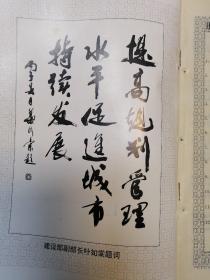 提高规划管理
水平促进城市
持续发展
丙子岁月叶如棠题
建设部副部长叶如棠题词